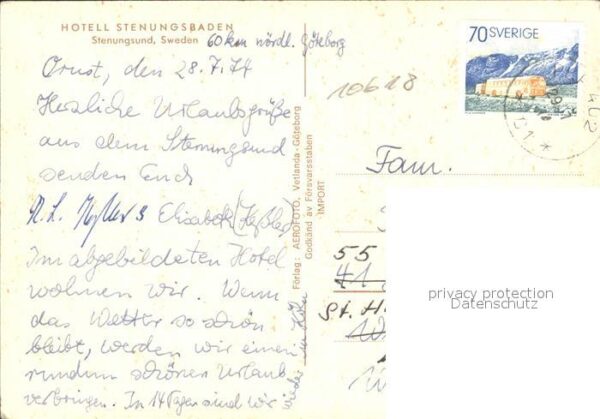 HOTELL STENUNGSBADEN
Stenungsund, Sweden
60 km nördl. Göteborg
Orust, den 28.7.74
Herzliche Urlaubsgrüße
aus dem Stenungsund
senden Euch
Elisabeth (Keßler)
Im abgebildeten Hotel
wohnen wir. Wenn
das Wetter so schön
bleibt, werden wir einen
rundum schönen Urlaub
verbringen. In 14 Tagen sind wir
wieder in Köln
Förlag: AEROFOTO, Vetlanda-Göteborg
Godkänd av Försvarsstaben
IMPORT
10618
70 SVERIGE
Fam.
55
41
St. H
privacy protection
Datenschutz